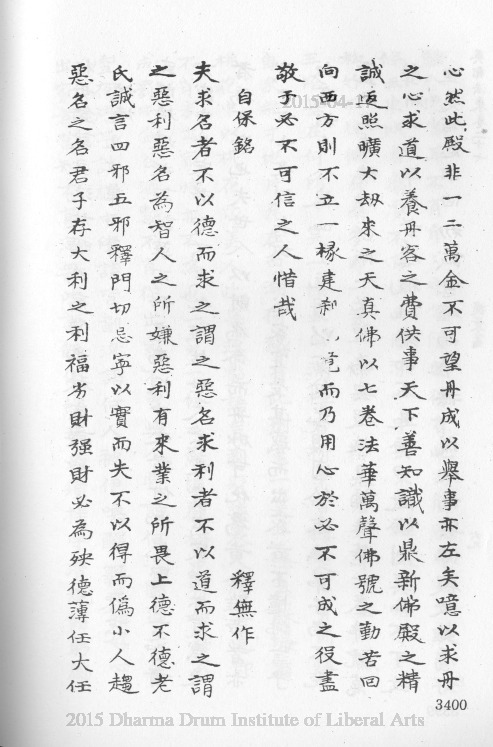 心然此殿非一二萬金不可望丹成以舉事亦左矣噫以求丹
之心求道以養丹客之費供事天下善知識以鼎新佛殿之精
誠返照曠大劫來之天真佛以七卷法華萬聲佛號之勤苦回
向西方則不立一椽建剎竟而乃用心於必不可成之役盡
敬于必不可信之人惜哉
自保銘
釋無作
夫求名者不以德而求之謂之惡名求利者不以道而求之謂
之惡利惡名為智人之所嫌惡利有來業之所畏上德不德老
氏誠言四邪五邪釋門切忌寧以實而失不以得而偽小人趨
惡名之名君子存大利之利福劣財強財必為殃德薄任大任
3400
2015-04-1
2015 Dharma Drum Institute of Liberal Arts